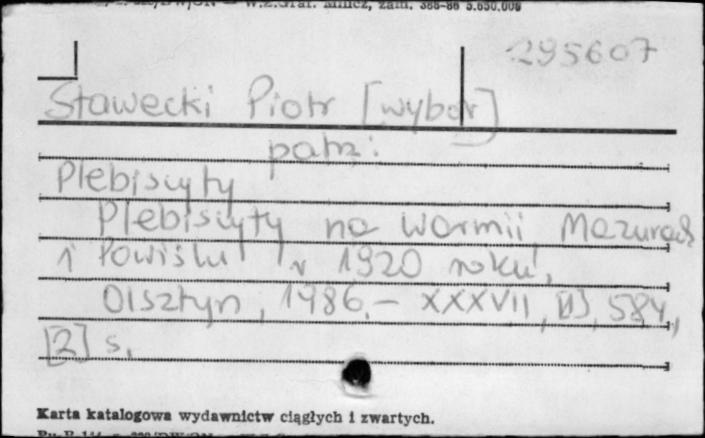 W.Z.Graf. Miłicz, zam. 386-86 5.650.000
295607
Stawecki Piotr [wybór]
patrz:
Plebiscyty
Plebiscyty na Warmii, Mazurach
i Powiślu w 1920 roku,
Olsztyn, 1986.- XXXVII, [1], 584,
[2] s.
Karta katalogowa wydawnictw ciągłych i zwartych.